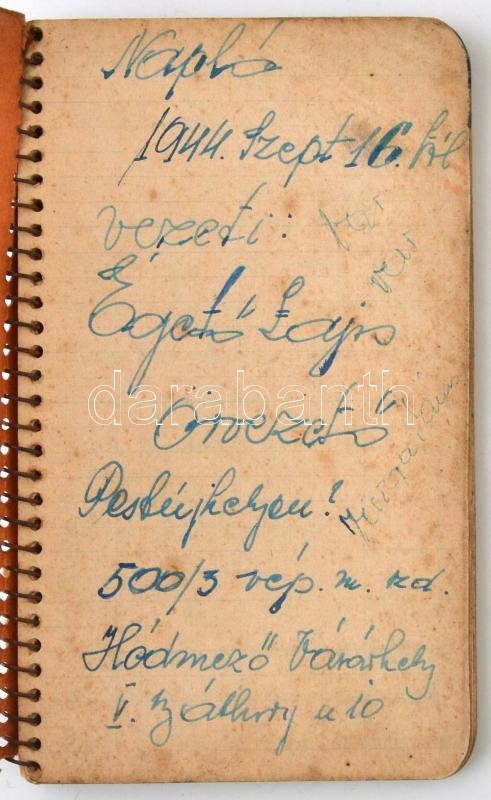 Napló
1944. Szept 16. tól
vezeti:
Égető Lajos
Őrvezető
Pestújhelyen?
500/3 vép. m. szd.
Hódmező Vásárhely
V. Báthory u 10
darabanth